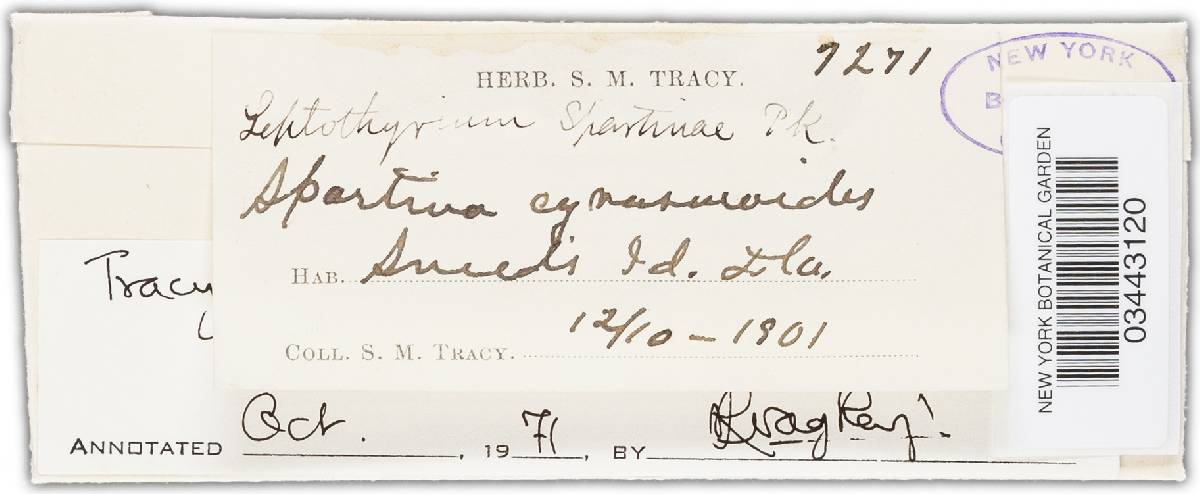 7271
NEW YORK
HERB. S. M. TRACY.
Leptothyrium Spartinae Pk.
Spartina cynosuroides
HAB. Sneeds Id. Fla.
12/10 - 1901
COLL. S. M. TRACY.
Tracy
ANNOTATED Oct. , 1971, BY
NEW YORK BOTANICAL GARDEN
03443120